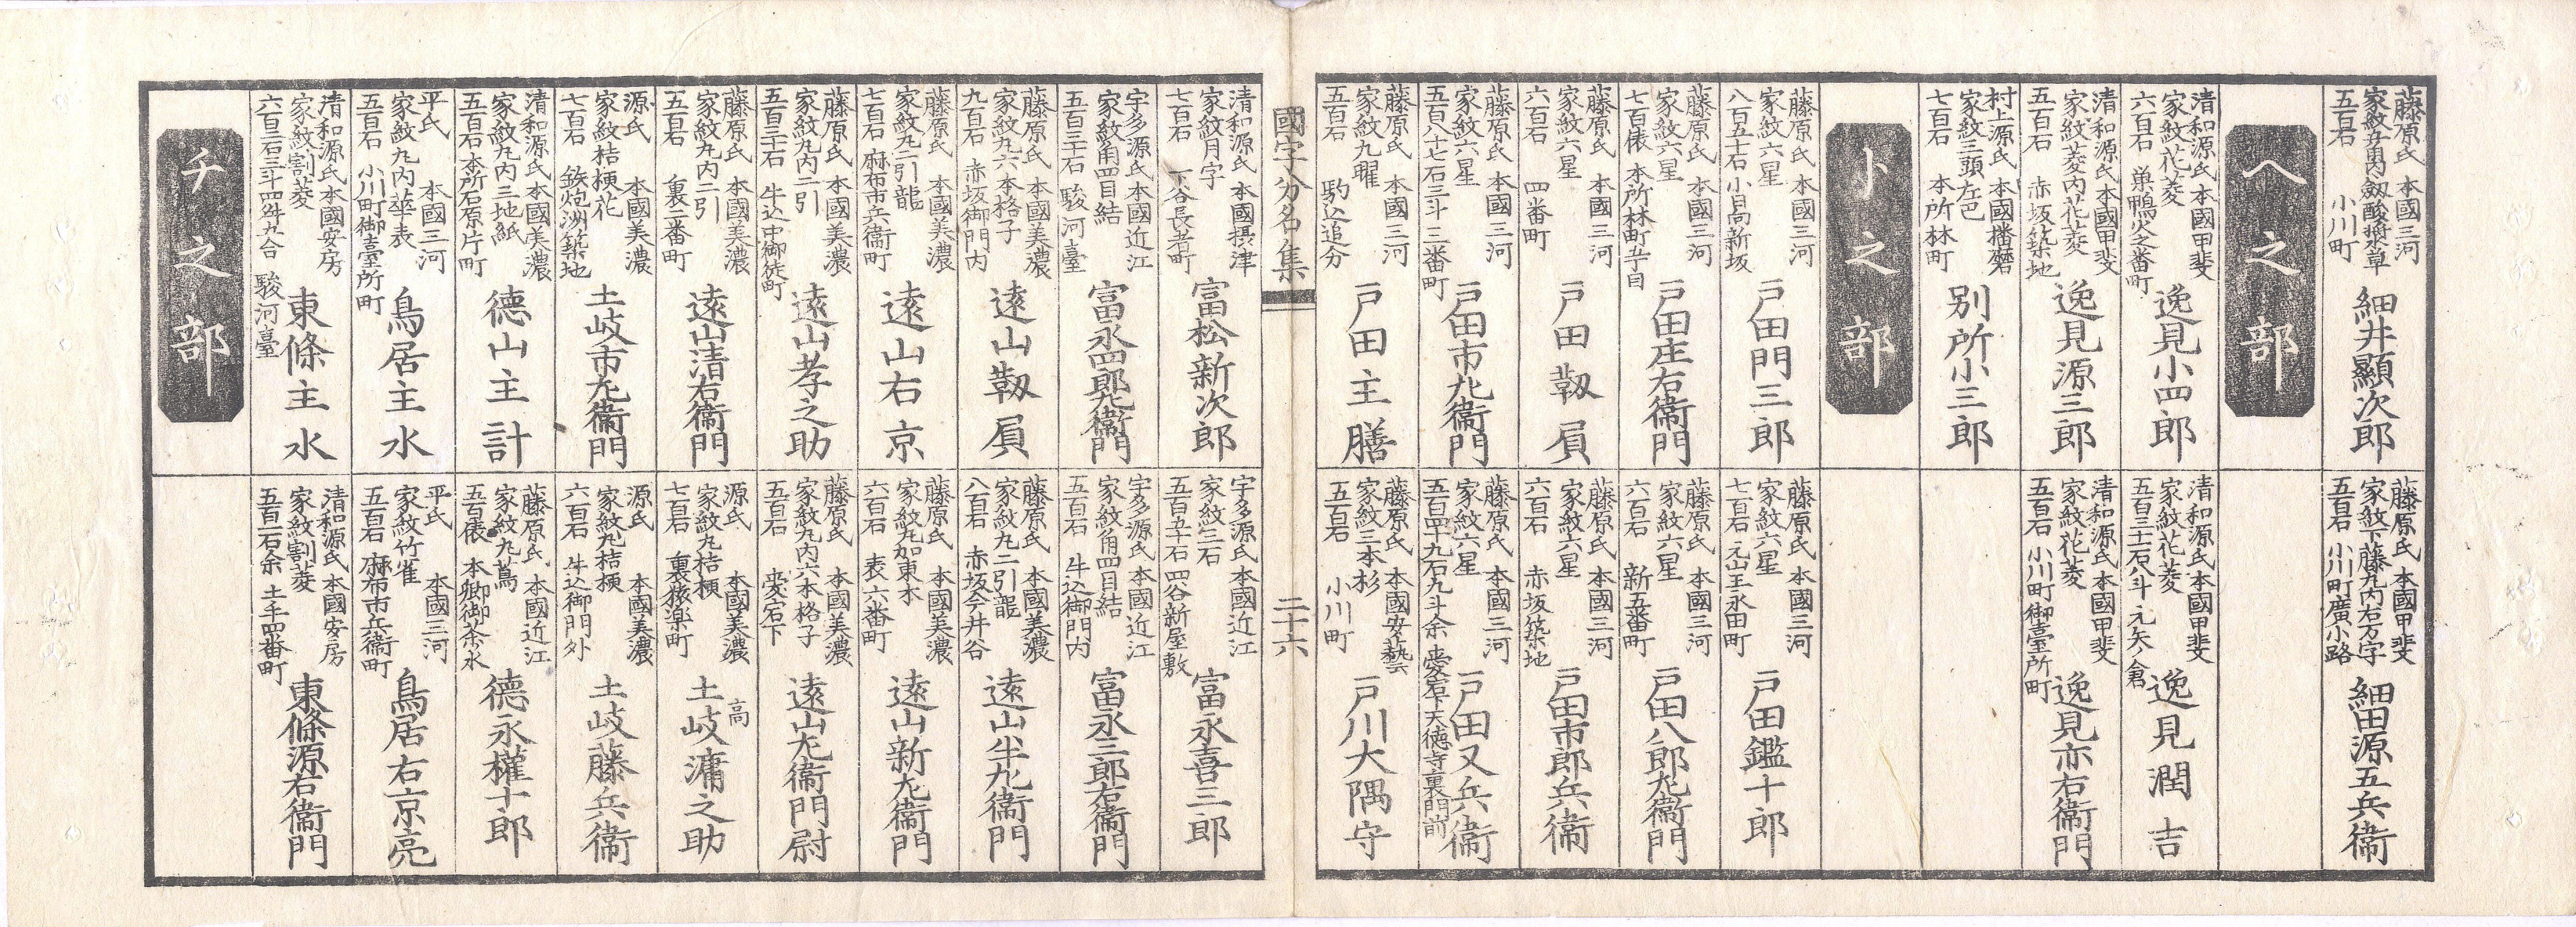 藤原氏 本國三河
家紋
五百石 小川町
細井顯次郎
藤原氏 本國甲斐
家紋下藤丸内右万字
五百石 小川町廣小路
細田源五兵衛
ヘ之部
清和源氏 本國甲斐
家紋花菱
六百石 巣鴨火之番町
逸見小四郎
清和源氏 本國甲斐
家紋花菱
五百三十石八斗 元矢ノ倉
逸見潤吉
清和源氏 本國甲斐
家紋菱内花菱
五百石 赤坂築地
逸見源三郎
清和源氏 本國甲斐
家紋花菱
五百石 小川町御臺所町
逸見亦右衛門
村上源氏 本國播磨
家紋三頭左巴
七百石 本所林町
別所小三郎
ト之部
藤原氏 本國三河
家紋六星
八百五十石 小日向新坂
戸田門三郎
藤原氏 本國三河
家紋六星
七百石 元山王永田町
戸田鑑十郎
藤原氏 本國三河
家紋六星
七百俵 本所林町五丁目
戸田庄右衛門
藤原氏 本國三河
家紋六星
六百石 新五番町
戸田八郎左衛門
藤原氏 本國三河
家紋六星
六百石 四番町
戸田靱負
藤原氏 本國三河
家紋六星
六百石 赤坂築地
戸田市郎兵衛
藤原氏 本國三河
家紋六星
五百八十七石三斗 三番町
戸田市左衛門
藤原氏 本國三河
家紋六星
五百四十九石九斗余 愛宕下天徳寺裏門前
戸田又兵衛
藤原氏 本國三河
家紋九曜
五百石 駒込追分
戸田主膳
藤原氏 本國安藝
家紋三本杉
五百石 小川町
戸川大隅守
國字分名集
二十六
清和源氏 本國摂津
家紋月字
七百石 下谷長者町
富松新次郎
宇多源氏 本國近江
家紋三石
五百五十石 四谷新屋敷
富永喜三郎
宇多源氏 本國近江
家紋角四目結
五百三十石 駿河臺
富永四郎左衛門
宇多源氏 本國近江
家紋角四目結
五百石 牛込御門内
富永三郎右衛門
藤原氏 本國美濃
家紋丸六本格子
九百石 赤坂御門内
遠山靱負
藤原氏 本國美濃
家紋丸二引龍
八百石 赤坂今井谷
遠山半左衛門
藤原氏 本國美濃
家紋丸二引龍
七百石 麻布市兵衛町
遠山右京
藤原氏 本國美濃
家紋丸加東木
六百石 表六番町
遠山新左衛門
藤原氏 本國美濃
家紋丸内二引
五百三十石 牛込中御徒町
遠山孝之助
藤原氏 本國美濃
家紋丸内六本格子
五百石 愛宕下
遠山左衛門尉
藤原氏 本國美濃
家紋丸内二引
五百石 裏二番町
遠山清右衛門
源氏 本國美濃
家紋丸桔梗
七百石 裏猿楽町
高
土岐滝之助
源氏 本國美濃
家紋桔梗花
七百石 鉄炮洲築地
土岐市左衛門
源氏 本國美濃
家紋丸桔梗
六百石 牛込御門外
土岐藤兵衛
清和源氏 本國美濃
家紋丸内三地紙
五百石 本所石原片町
徳山主計
藤原氏 本國近江
家紋丸蔦
五百俵 本郷御茶水
徳永權十郎
平氏 本國三河
家紋丸内華表
五百石 小川町御臺所町
鳥居主水
平氏 本國三河
家紋竹雀
五百石 麻布市兵衛町
鳥居右京亮
清和源氏 本國安房
家紋割菱
六百二石三斗四舛九合 駿河臺
東條主水
清和源氏 本國安房
家紋割菱
五百石余 土手四番町
東條源右衛門
チ之部